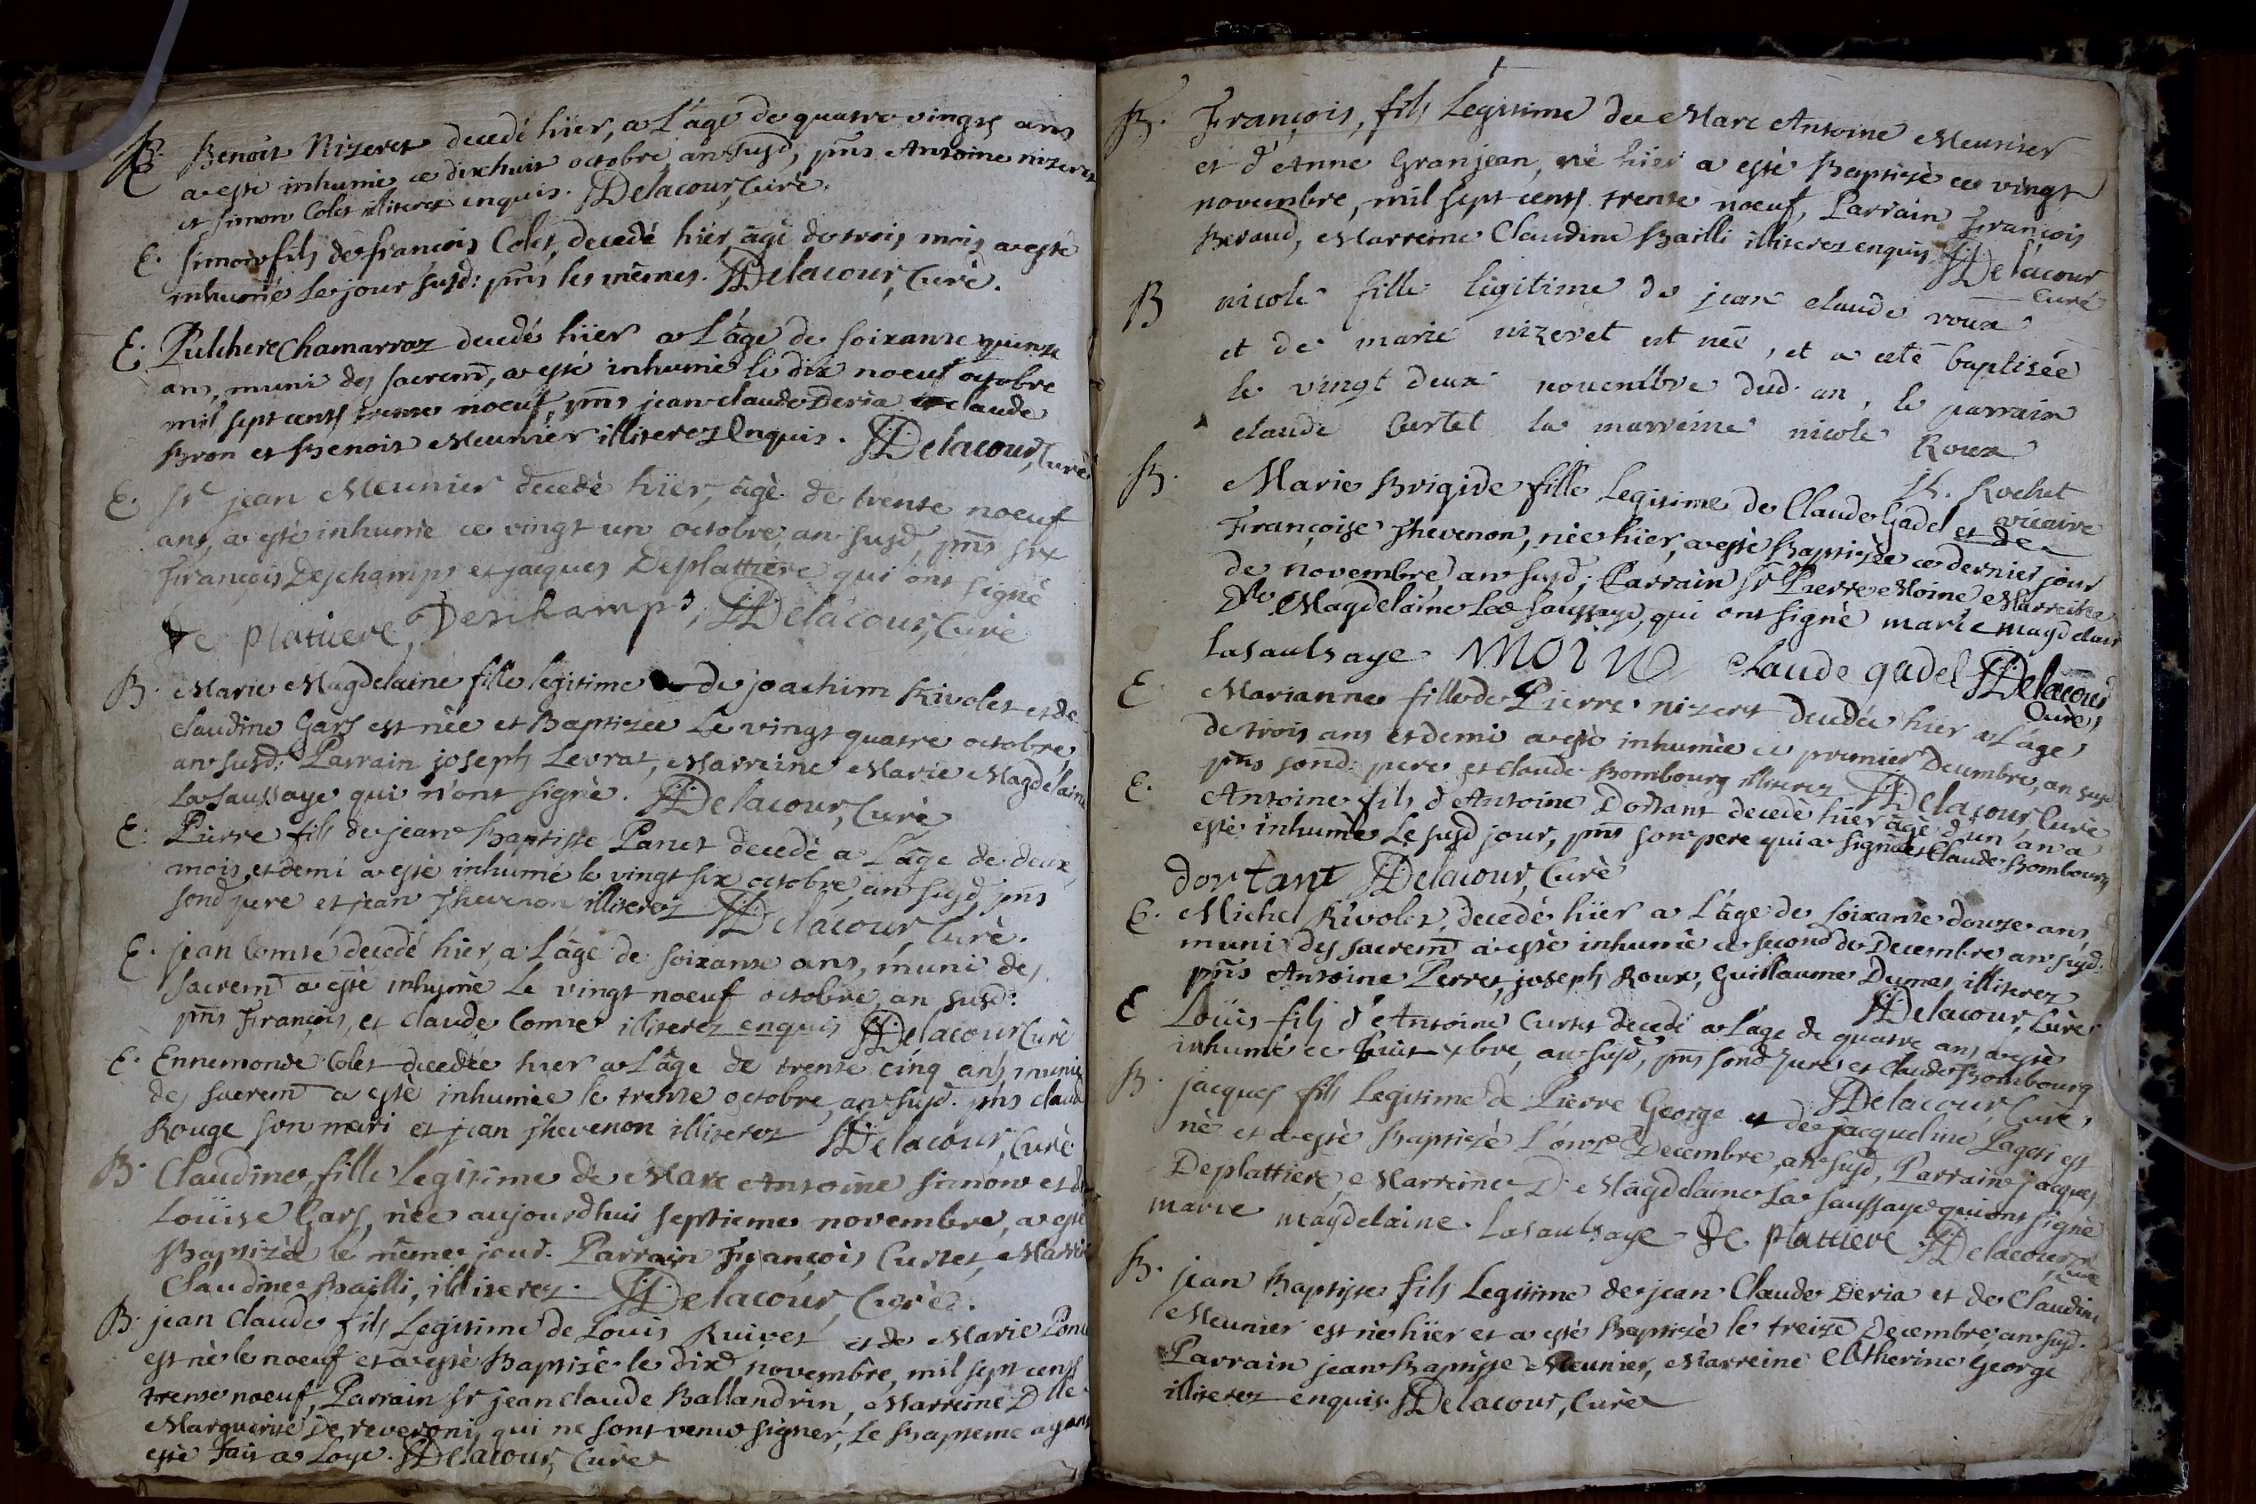 E. Benoit Nizeret decedé hïer, a L'age de quatre vingts ans
a esté inhumé ce dixhuit octobre an susd, pnts Antoine nizeret
et simon Colet illiterez enquis. Delacour, Curé.
E. simon fils de françois Colet, decedé hïer âgé de trois mois a esté
inhumé le jour susd: pnts les mêmes. Delacour, Curé.
E. Pulchere Chamarroz decedé hïer a L'âge de soixante quinze
ans, muni des sacrem, a esté inhumé le dix noeuf octobre
mil sept cents trente noeuf, pnts jean claude Deria claude
Bron et Benoit Meunier illiterez Enquis. Delacour, Curé
E. Sr jean Meunier decedé hïer, âgé de trente noeuf
ans, a esté inhumé ce vingt un octobre, an susd, pnts srs
François Deschamps et jacques Deplattiere qui ont signé
De platiere, Deschamps, Delacour, Curé
B. Marie Magdelaine fille legitime de joachim Rivolet et de
claudine Gars est née et Baptizée Le vingt quatre octobre,
an susd: Parrain joseph Levrat, Marreine Marie Magdelaine
La saussaye qui n'ont signé. Delacour, Curé
E. Pierre fils de jean Baptiste Panet decedé a L'âge de deux
mois, et demi a esté inhumé le vingt six octobre, an susd, pnts
sond pere et jean Thevenon illiterez Delacour, Curé.
E. jean Comte decedé hïer, a L'âge de soixante ans, muni des
sacrem a esté inhumé Le vingt noeuf octobre, an susd:
pnts François, et claude Comte illiterez enquis Delacour Curé
E. Ennemonde Colet decedée hier a L'âge de trente cinq ans, munie
des sacrem a esté inhumée le trente octobre, an susd. pnts claude
Rouge son mari et jean Thevenon illiterez Delacour, Curé
B. Claudine, fille Legitime de Marc Antoine simon et de
Louïse Gars, née aujourdhui septieme novembre, a esté
Baptizée le même jour. Parrain François Curtet, Marreine
Claudine Bailli, illiterez. Delacour, Curé.
B. jean Claude fils Legitime de Louis Ruivet et de Marie
est né le noeuf et a esté Baptizé le dix novembre, mil sept cents
trente noeuf, Parrain sr jean claude Ballandrin, Marreine Dlle
Marguerite De reveroni, qui ne sont venu signer, Le Bapteme ayant
esté fait a Loye. Delacour, Curé
B. François, fils Legitime de Marc Antoine Meunier
et d'Anne Granjean, né hïer a esté Baptizé ce vingt
novembre, mil sept cents trente noeuf, Parrain François
Beraud, Marreine Claudine Bailli illiterez enquis Delacour
Curé
B nicole fille legitime de jean claude roux
et de marie nizeret est neé, et a eté baptisée
le vingt deux novembre dud. an, le parrain
claude Curtet la marreine nicole Roux
Rochet
vicaire
B. Marie Brigide fille Legitime de Claude Gadel et de
Françoise Thevenon, née hier, a esté Baptizée ce dernier jour
de novembre an susd; Parrain sr Pierre Moine Marreine
Dlle Magdelaine La Saussaye, qui ont signé marie magdelaine
lasaulsaye MOINE claude gadel Delacour
Curé,
E Marianne fille de Pierre nizeret decedée hier a L'age
de trois ans et demi a esté inhumée ce premier Decembre, an susd
pnts sond: pere et claude Bombourg illiterez Delacour, Curé
E. Antoine fils d'Antoine Dortant decedé hïer âgé d'un an a
esté inhumé Le susd jour, pnts son pere qui a signé et Claude Bombourg
dortant Delacour, Curé
E. Michel Rivolet decedé hïer a L'âge de soixante douze ans,
muni des sacrem a esté inhumé ce second de Decembre an susd.
pnts Antoine Perret, joseph Roux, Guillaume Dumas, illiterez
Delacour, Curé
E Loüis fils d'Antoine Curtet decedé a L'age de quatre ans a esté
inhumé ce huit xbre, an susd, pnts sond pere et Claude Bombourg
Delacour, Curé,
B. jacques fils Legitime de Pierre George et de jacqueline Lager est
né et a esté Baptizé L'onze Decembre, an susd, Parrain jacques
Deplattiere, Marreine D. Magdelaine La Saussaye qui ont signé
marie magdelaine lasaulsaye De platiere Delacour, Curé
B. jean Baptiste fils Legitime de jean Claude Deria et de Claudine
Meunier est né hïer et a esté Baptizé le treize Decembre, an susd.
Parrain jean Baptiste Meunier, Marreine Catherine George
illiterez enquis. Delacour, Curé